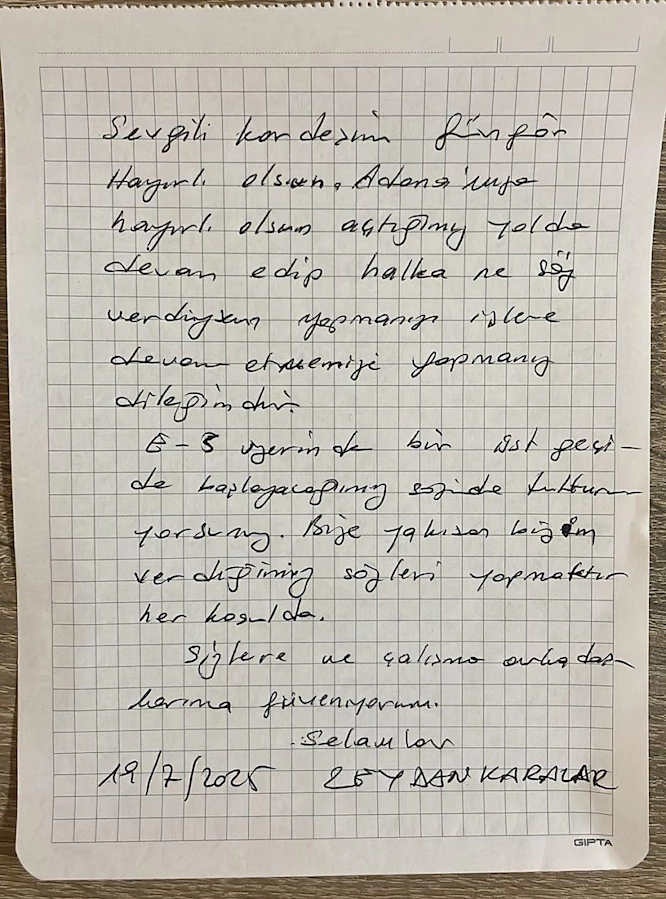 Sevgili kardeşim Güngör
Hayırlı olsun. Adana'mıza
hayırlı olsun açtığımız yolda
devam edip halka ne söz
verdiysem yapmanızı işlere
devam etmenizi yapmanız
dileğimdir.
E-5 üzerinde bir üst geçi-
de başlayacağımız sözünde
yorsunuz. Bize yakışan bizim
verdiğimiz sözleri yapmaktır
her koşulda.
Sizlere ve çalışma arkadaş-
larıma güveniyorum.
Selamlar
19/7/2025 ZEYDAN KARALAR
GIPTA